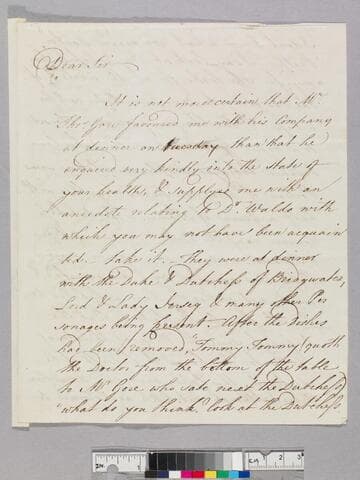 Dear Sir
It is not more certain that Mr.
Thos. Gore favoured me with his Company
at dinner on tuesday than that he
enquired very kindly into the state of
your health, & supplyed me with an
anecdote relating to Dr. Waldo with
which you may not have been acquain
ted. Take it. They were at dinner
with the Duke & Dutchess of Bridgwater,
Lord & Lady Jersey & many other Per
sonages being present. After the dishes
had been removed, Tommy Tommy (quoth
the Doctor from the bottom of the table
to Mr. Gore who sate next the Dutchess)
what do you think? look at the Dutchess
IN. 1
CM 2 3